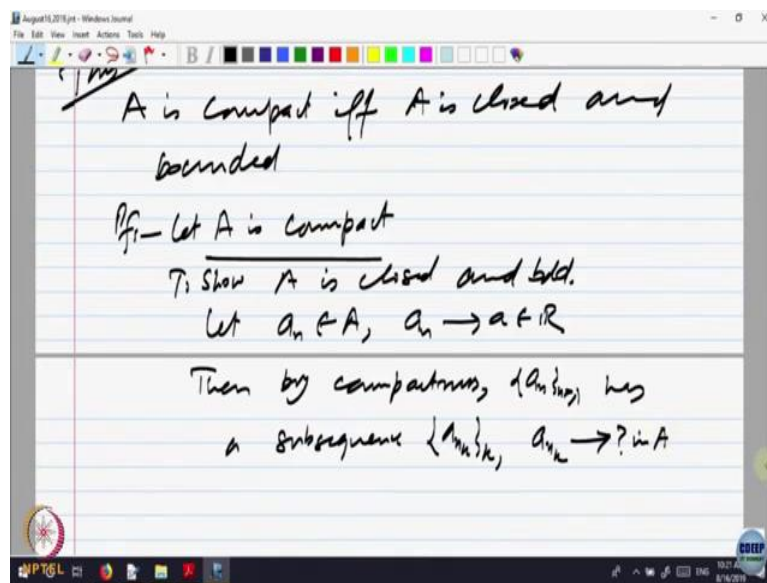 August16,2019.jnt - Windows Journal
File Edit View Insert Actions Tools Help
Thm
A is compact iff A is closed and
bounded
Pf:- Let A is compact
T. Show A is closed and bdd.
Let aₙ ∈ A, aₙ → a ∈ ℝ
Then by compactness, {aₙ}ₙ≥₁ has
a subsequence {aₙₖ}ₖ, aₙₖ → ? in A
NPTEL
CDEEP
ENG
8/16/2019